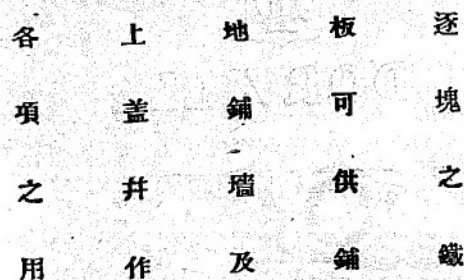 逐塊之鐵
板可供鋪
地鋪墻及
上盖并作
各項之用